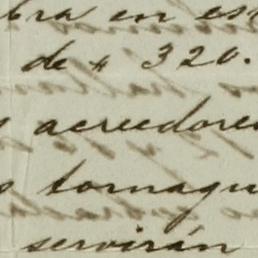 bra en es
de # 320.
s acreedores
s tornagu
servirán